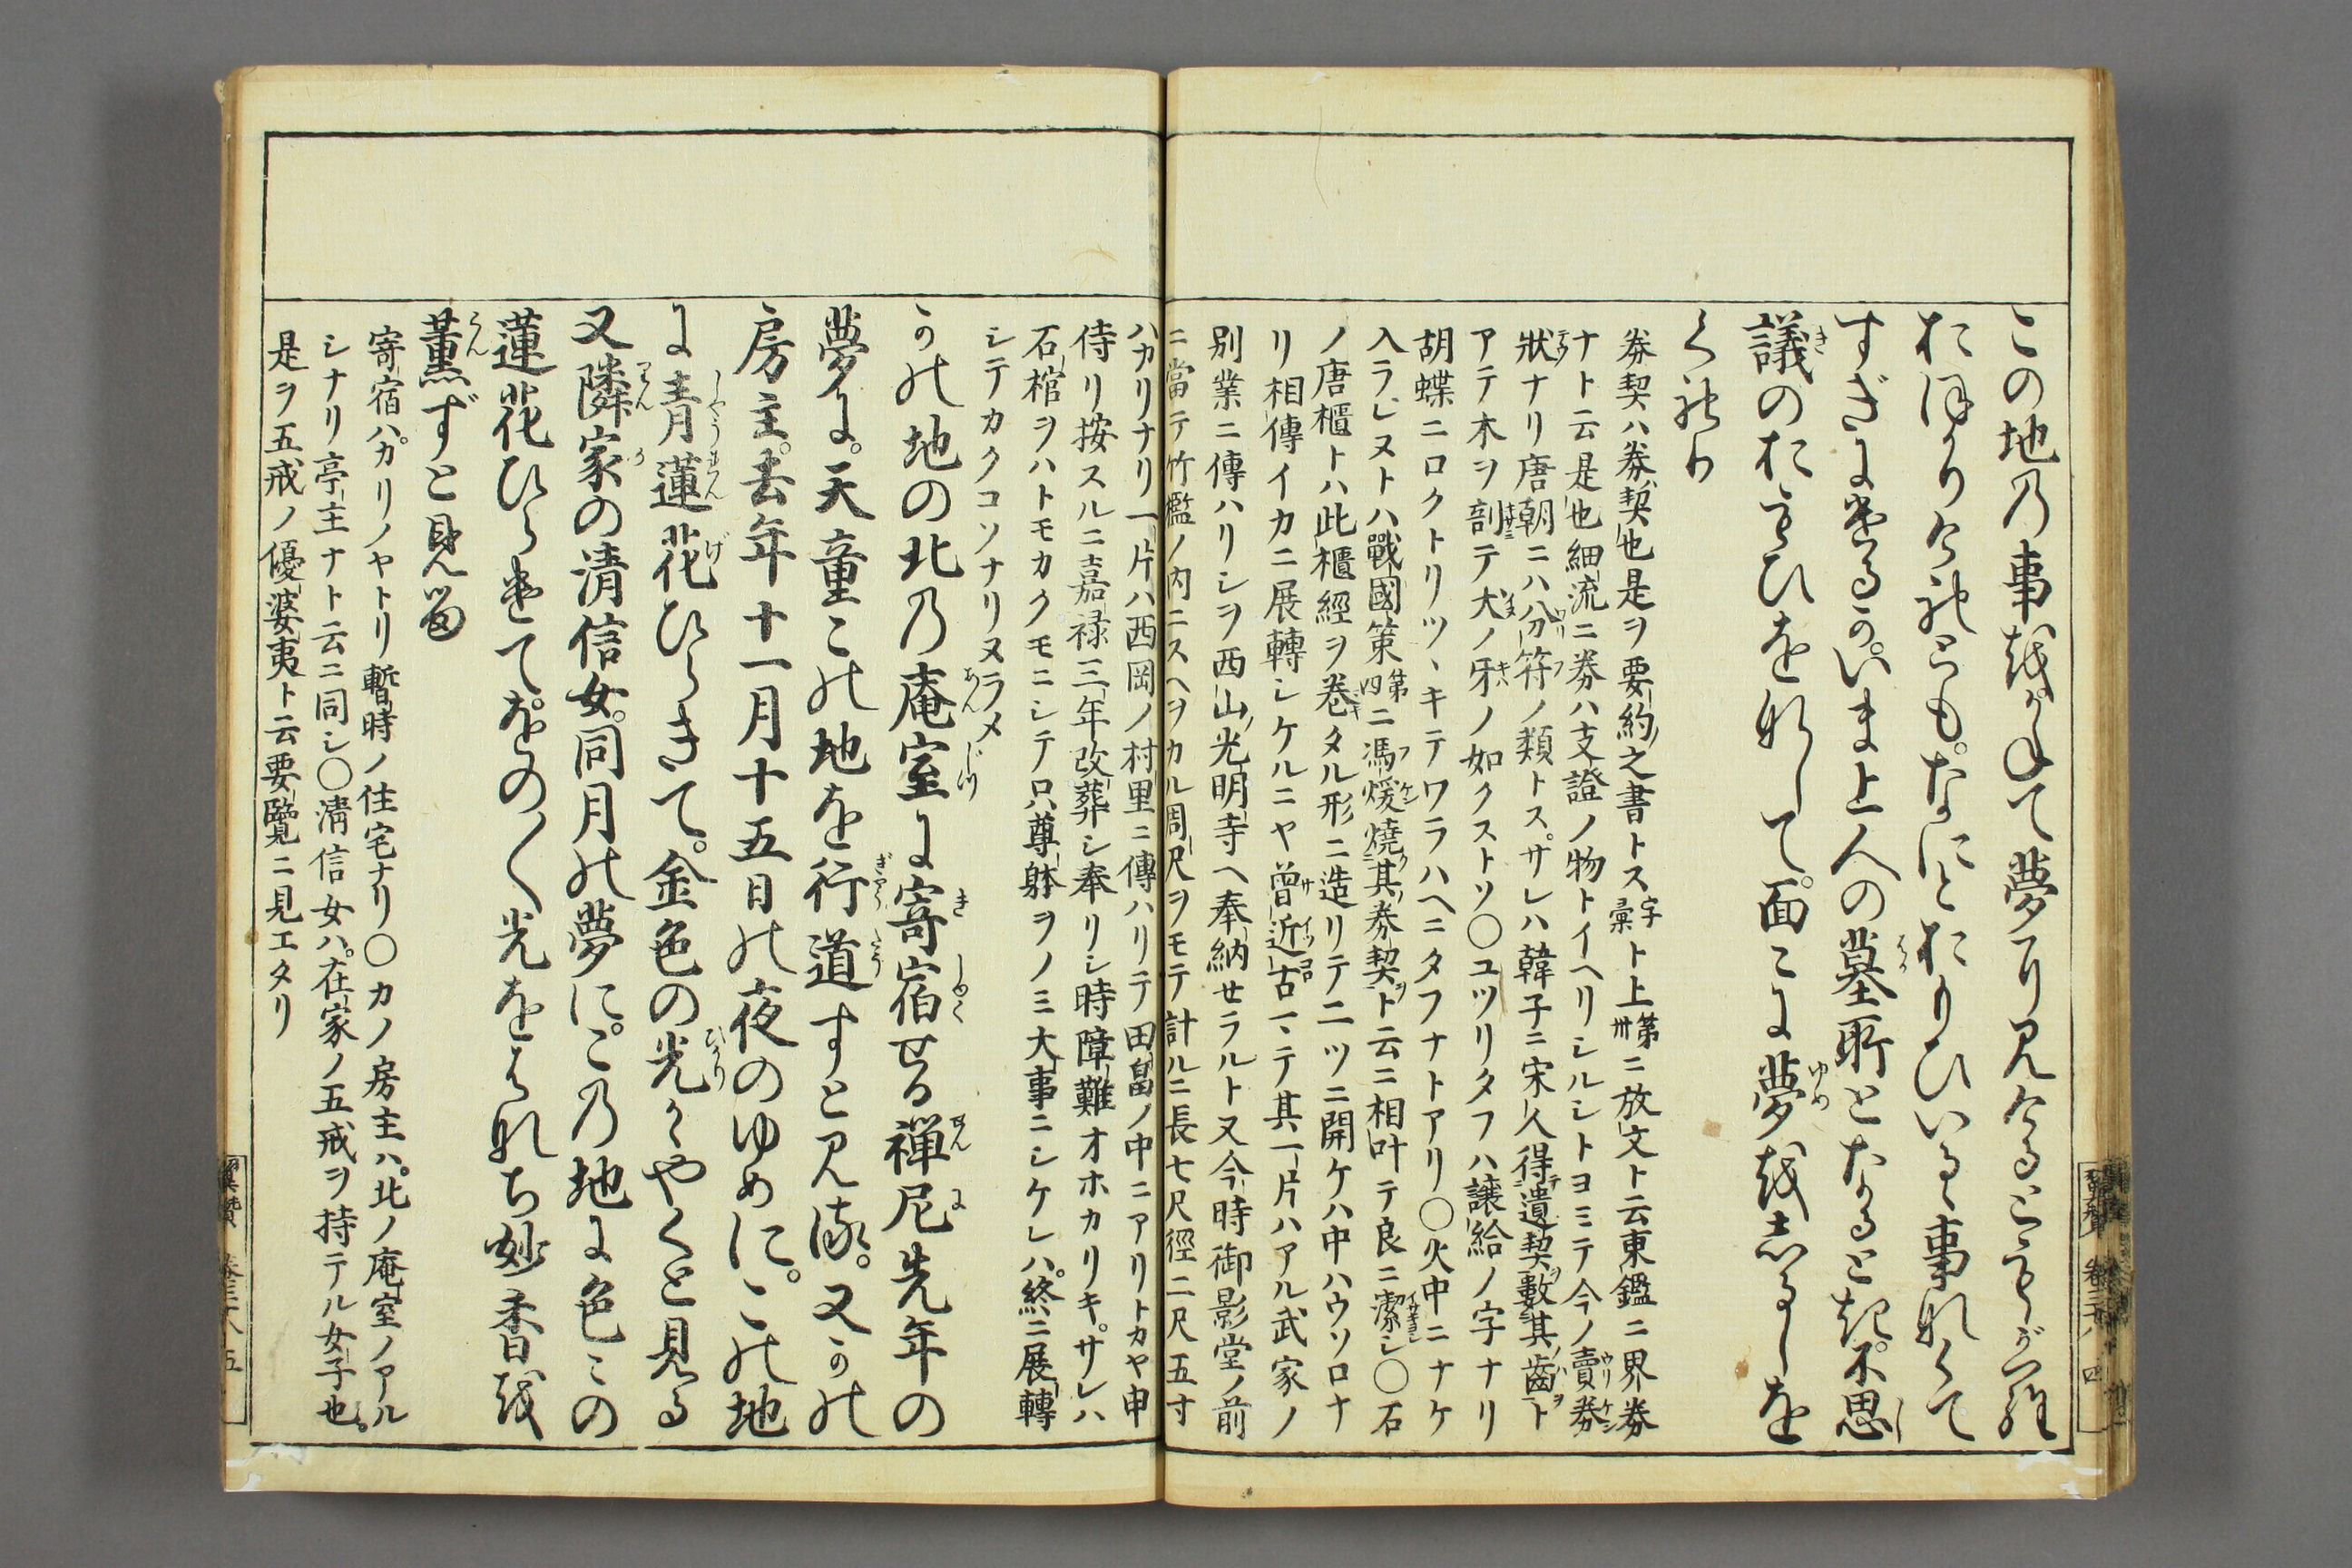 この地乃事越かねて夢に見ることありて
おほかりけれとも。なにとおもひいるゝ事なくて
すぎにけるか。いま上人の墓所となると起。不思
議のおもひをなして。面こに夢越志るしを
くれり
券契ハ券契也是ヲ要約之書トス字彙ト上第卅ニ放文ト云東鑑ニ界券
ナト云是也細流ニ券ハ支證ノ物トイヘリシルシトヨミテ今ノ賣券
狀ナリ唐朝ニハ分符ノ類トス。サレハ韓子ニ宋人得遺契數其齒ト
アテ木ヲ刻テ犬ノ牙ノ如クストソ〇ユツリタフハ讓給ノ字ナリ
胡蝶ニロクトリツヽキテワラハヘニタフナトアリ〇火中ニナケ
入ラレヌトハ戰國策第四ニ馮煖燒其券契ト云ニ相叶テ良ニ潔シ〇石
ノ唐櫃トハ此櫃經ヲ卷タル形ニ造リテ二ツニ開ケハ中ハウソロナ
リ相傳イカニ展轉シケルニヤ曾近古一テ其一片ハアル武家ノ
別業ニ傳ハリシヲ西山光明寺ヘ奉納セラルト又今時御影堂ノ前
ニ當テ竹檻ノ内ニスヘヲカル周尺ヲモテ計ルニ長七尺徑二尺五寸
ハカリナリ一片ハ西岡ノ村里ニ傳ハリテ田畠ノ中ニアリトカヤ申
侍リ按スルニ嘉禄三年改葬シ奉リシ時障難オホカリキ。サレハ
石棺ヲハトモカクモニシテ只尊躰ヲノミ大事ニシケレハ。終ニ展轉
シテカクコソナリヌラメ
かの地の北乃庵室に寄宿せる禅尼先年の
夢に。天童この地を行道すと見る。又かの
房主。去年十一月十五日の夜のゆめに。この地
に青蓮花ひらきて。金色の光かゝやくと見る
又隣家の清信女。同月の夢に。こ乃地に色こ の
蓮花ひらけて。をの〱光をはなち妙香越
薫ずと見る
寄宿ハ。カリノヤトリ暫時ノ住宅ナリ〇カノ房主ハ。北ノ庵室ノアル
シナリ亭主ナト云ニ同シ〇淸信女ハ。在家ノ五戒ヲ持テル女子也。
是ヲ五戒ノ優婆夷ト云要覽ニ見エタリ
翼贊 卷三十八 四
翼贊 卷三十八 五